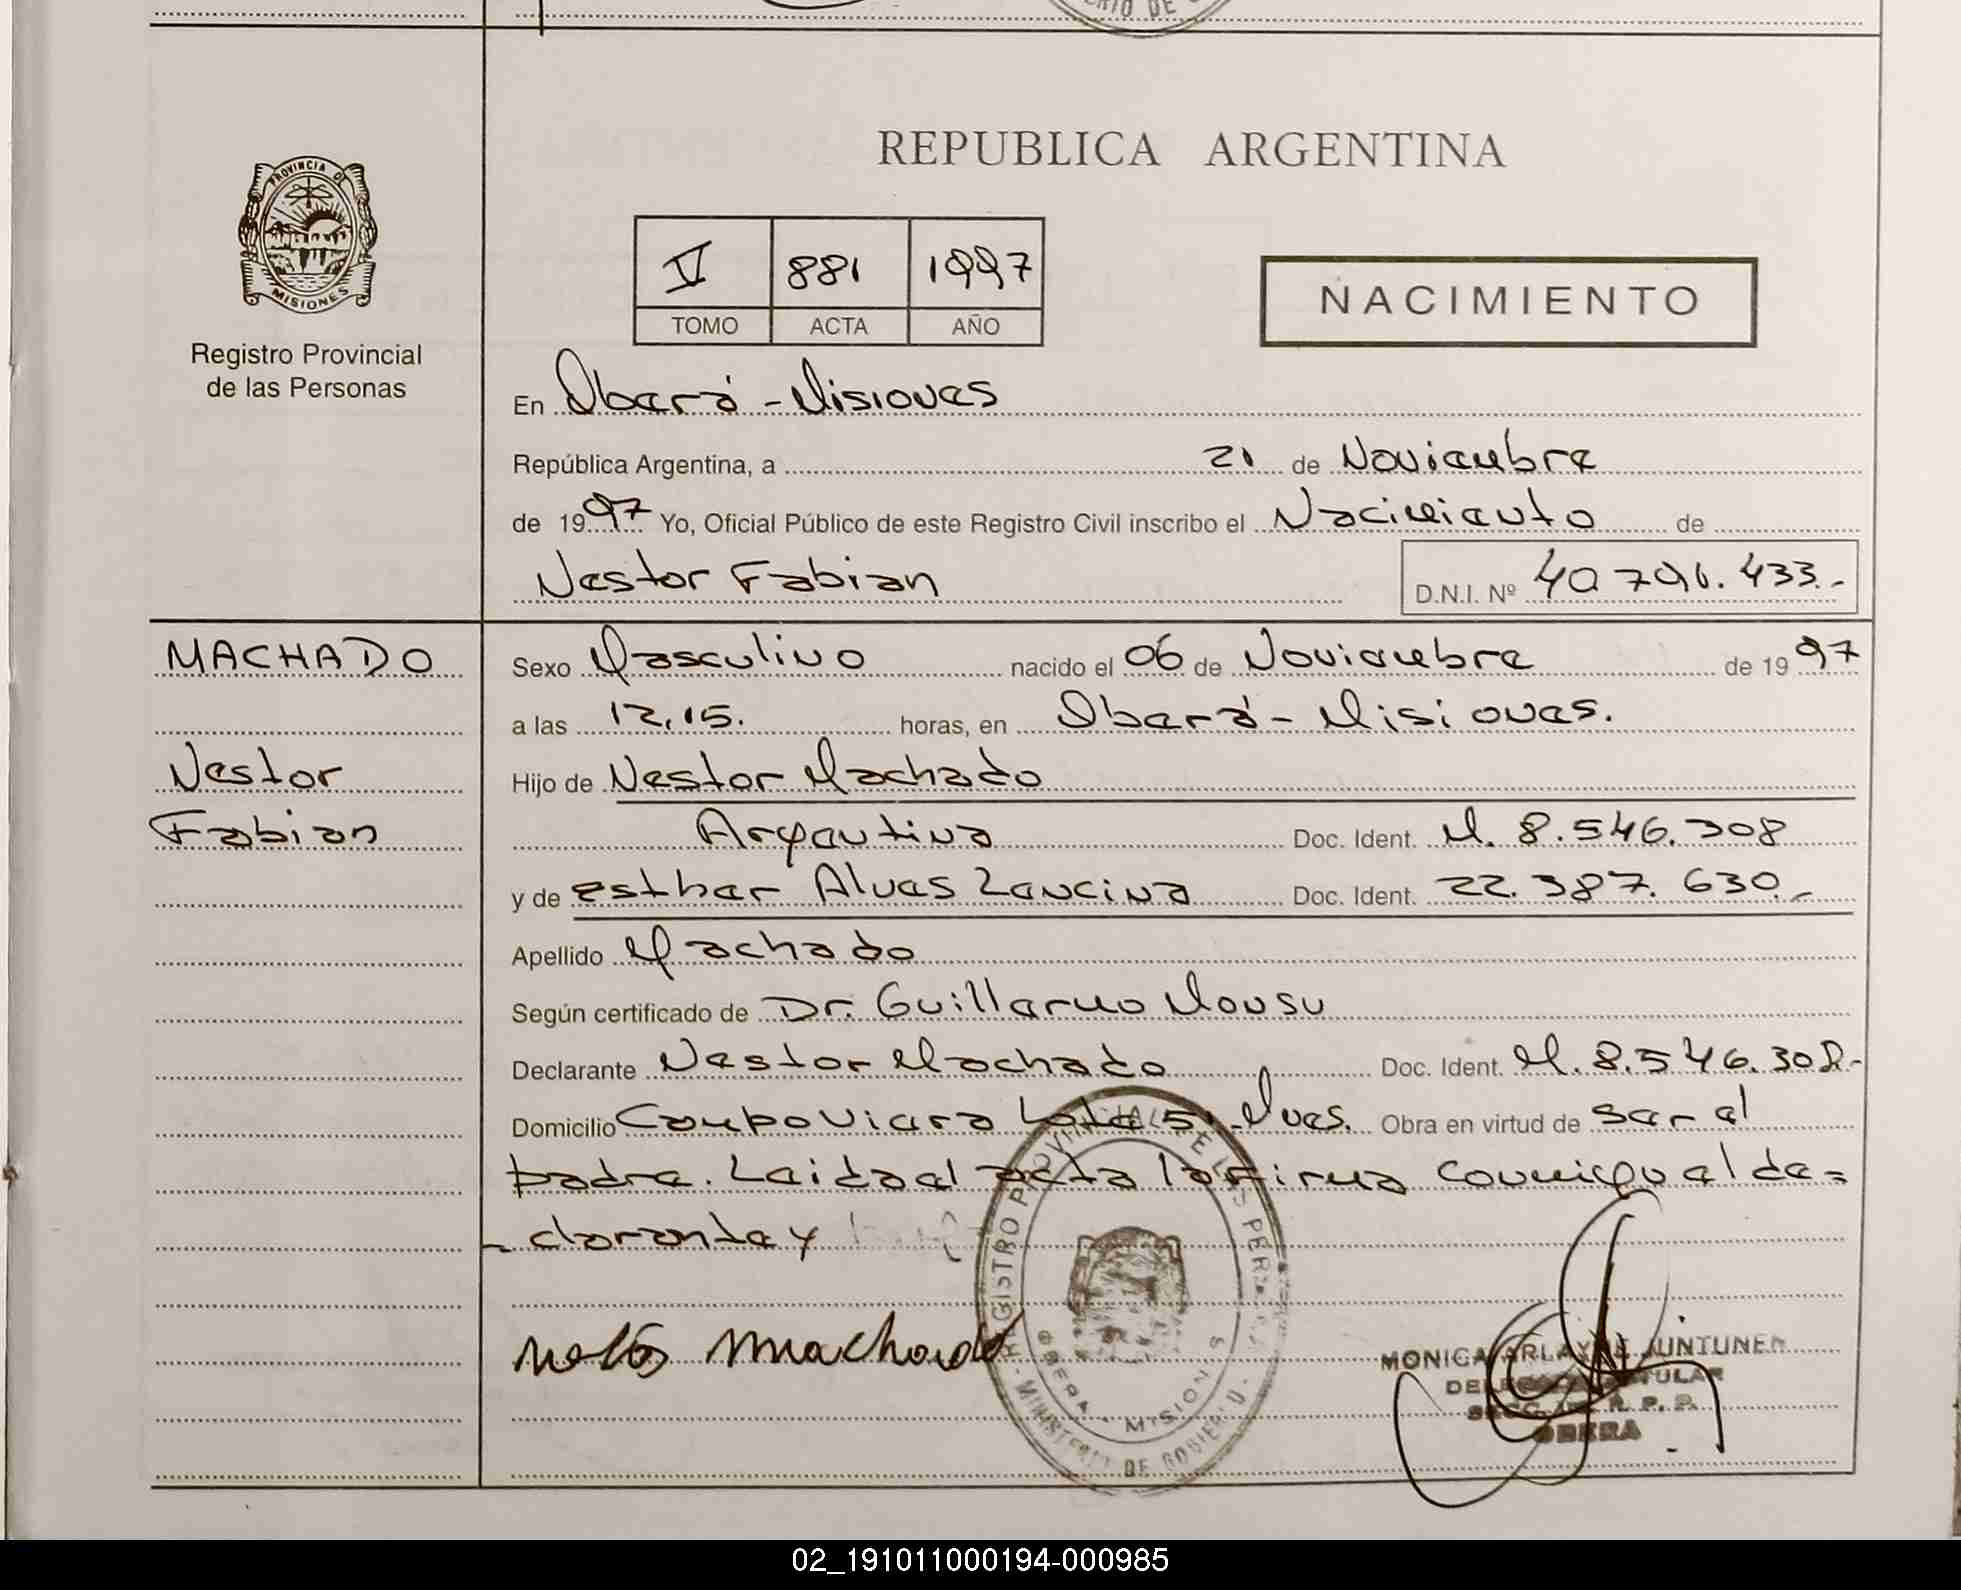 REPUBLICA ARGENTINA
PROVINCIA DE
MISIONES
Registro Provincial
de las Personas
V 881 1997
TOMO ACTA AÑO
NACIMIENTO
En Oberá - Misiones
República Argentina, a 21 de Noviembre
de 1997 Yo, Oficial Público de este Registro Civil inscribo el Nacimiento de
Nestor Fabian D.N.I. Nº 40796.433.-
MACHADO
Nestor
Fabian
Sexo Masculino nacido el 06 de Noviembre de 1997
a las 12,15. horas, en Oberá - Misiones.
Hijo de Nestor Machado
Argentina Doc. Ident. M. 8.546.308
y de esther Alves Lencina Doc. Ident. 22.387.630.-
Apellido Machado
Según certificado de Dr. Guillermo
Declarante Nestor Machado Doc. Ident. M.8.546.308.-
Domicilio Campo Viera Lote 5 Mnes. Obra en virtud de ser el
padre. Leida el acta la firma conmigo el de=
-clarante y
Machado
REGISTRO PROVINCIAL DE LAS PERSONAS
OBERA - MISIONES
- MINISTERIO DE GOBIERNO -
MONICA ARLAYNE JUNTUNEN
TITULAR
R. P. P.
OBERA
02_191011000194-000985